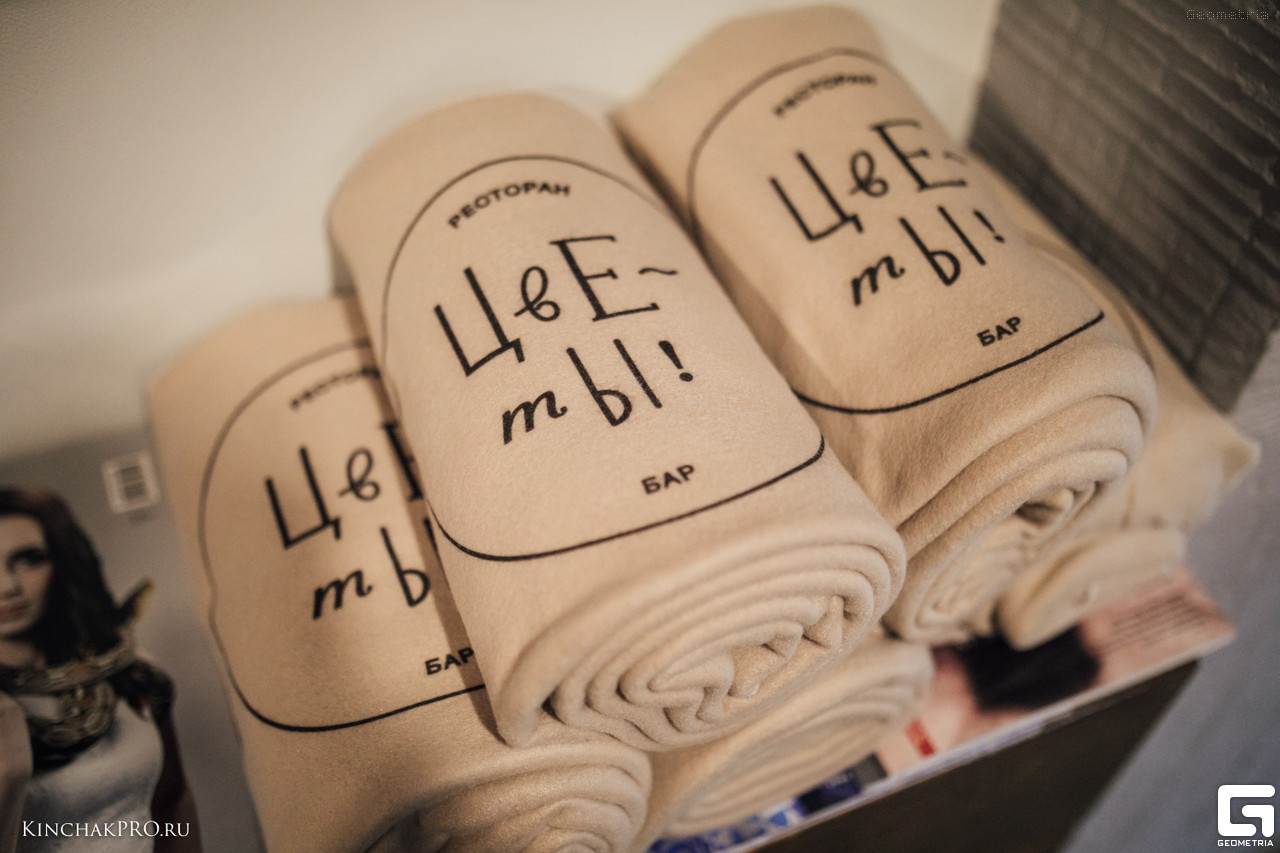 Geometria
РЕСТОРАН
ЦвЕ~
тЫ!
БАР
РЕСТОРАН
ЦвЕ-
тЫ!
БАР
РЕСТОРАН
Цв
тЫ
БАР
KINCHAKPRO.RU
GEOMETRIA